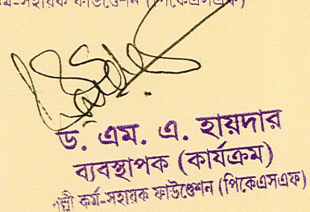 কর্ম-সহায়ক ফাউণ্ডেশন (পিকেএসএফ)
ড. এম. এ. হায়দার
ব্যবস্থাপক (কার্যক্রম)
পল্লী কর্ম-সহায়ক ফাউণ্ডেশন (পিকেএসএফ)